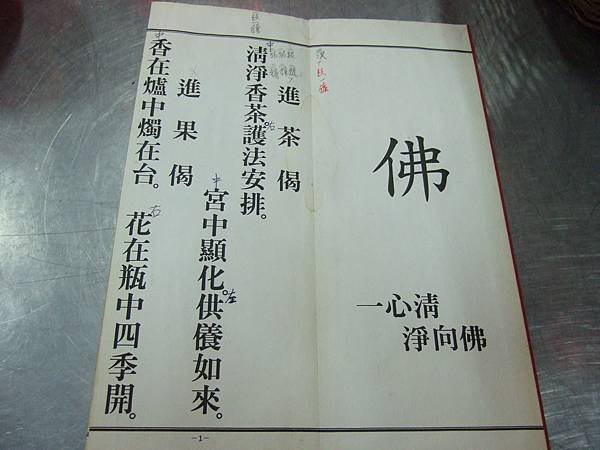 佛
一心清
淨向佛
進茶偈
清淨香茶護法安排。
宮中顯化。供養如來。
進果偈
香在爐中燭在台。花在瓶中四季開。
中
右
中
左
中
右
-1-